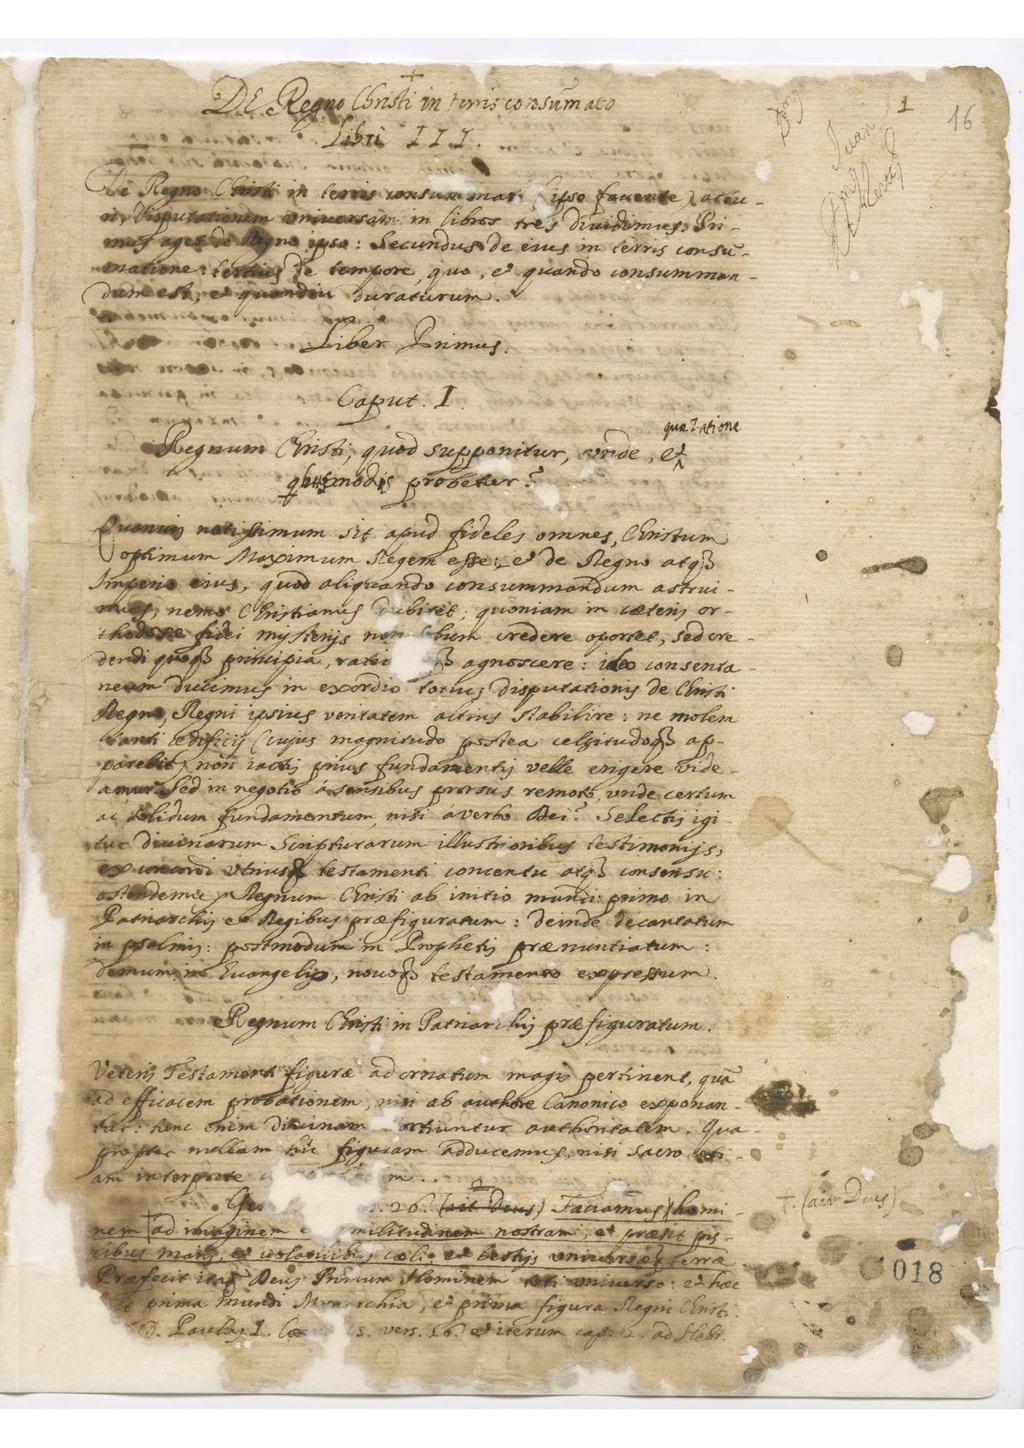 DE Regno Christi in terris consum̃ato
Libri III.
De Regno Christi in terris consummat (ipso favente) actu-
ri, Disputationem universam in libros tres dividimus: Pri-
mus aget de Regno ipso: Secundus de eius in terris consũ-
matione: tertius de tempore, quo, et quando consumman-
dum est, et quandiu duraturum.
Liber Primus.
Caput. I.
qua ratione
Regnum Christi, quod supponitur, unde, et
quibusmodis probetur?
notissimum sit apud fideles omnes, Christum
optimum Maximum Regem esse; et de Regno atqȝ
Imperio eius, quod aliquando consummandum astrui-
mus, nemo Christianus dubitet; quoniam in cæteris or-
thodoxæ fidei mysterijs non credere oportet, sed cre-
dendi quoqȝ principia, agnoscere: ideo consenta-
neum ducimus in exordio totius disputationis de Christi
Regno, Regni ipsius veritatem altius stabilire: ne molem
tanti ædificij (cujus magnitudo postea celsitudoqȝ ap-
parebit) non iactis prius fundamentis velle erigere vide-
amur. Sed in negotio á sensibus prorsus remoto, unde certum
ac solidum fundamentum, nisi á verbo Dei? Selectis igi-
tur divinarum Scripturarum illustrioribus testimonijs,
ex concordi utriusqȝ testamenti concentu atqȝ consensu:
ostendemus Regnum Christi ab initio mundi primo in
Patriarchis et Regibus præfiguratum: deinde decantatum
in psalmis: postmodum in Prophetis prænuntiatum:
demum in Evangelijs, novoqȝ testamento expressum.
Regnum Christi in Patriarchis præfiguratum.
Veteris Testamenti figuræ ad ornatum magis pertinent, quã
ad efficacem probationem, nisi ab authore Canonico exponan-
tur: hinc enim divinam sortiuntur authoritatem. Qua-
propter nullam hic figuram adducemus, nisi sacro, eti-
am interprete
26. (ait Deus) Faciamus homi-
nem ad imaginem militudinem nostram, et præsit pis-
cibus maris, et volatilibus cæli, et bestijs universæqȝ terræ
Præfecit itaqȝ Deus Primum Hominem toti universo: et hæc
prima mundi Monarchia, et prima figura Regni Christi.
D. Paulus I. Cor vers. 26. et iterum cap. 2. ad Hebr.
1
16
Juan
†. (ait Deus)
1018